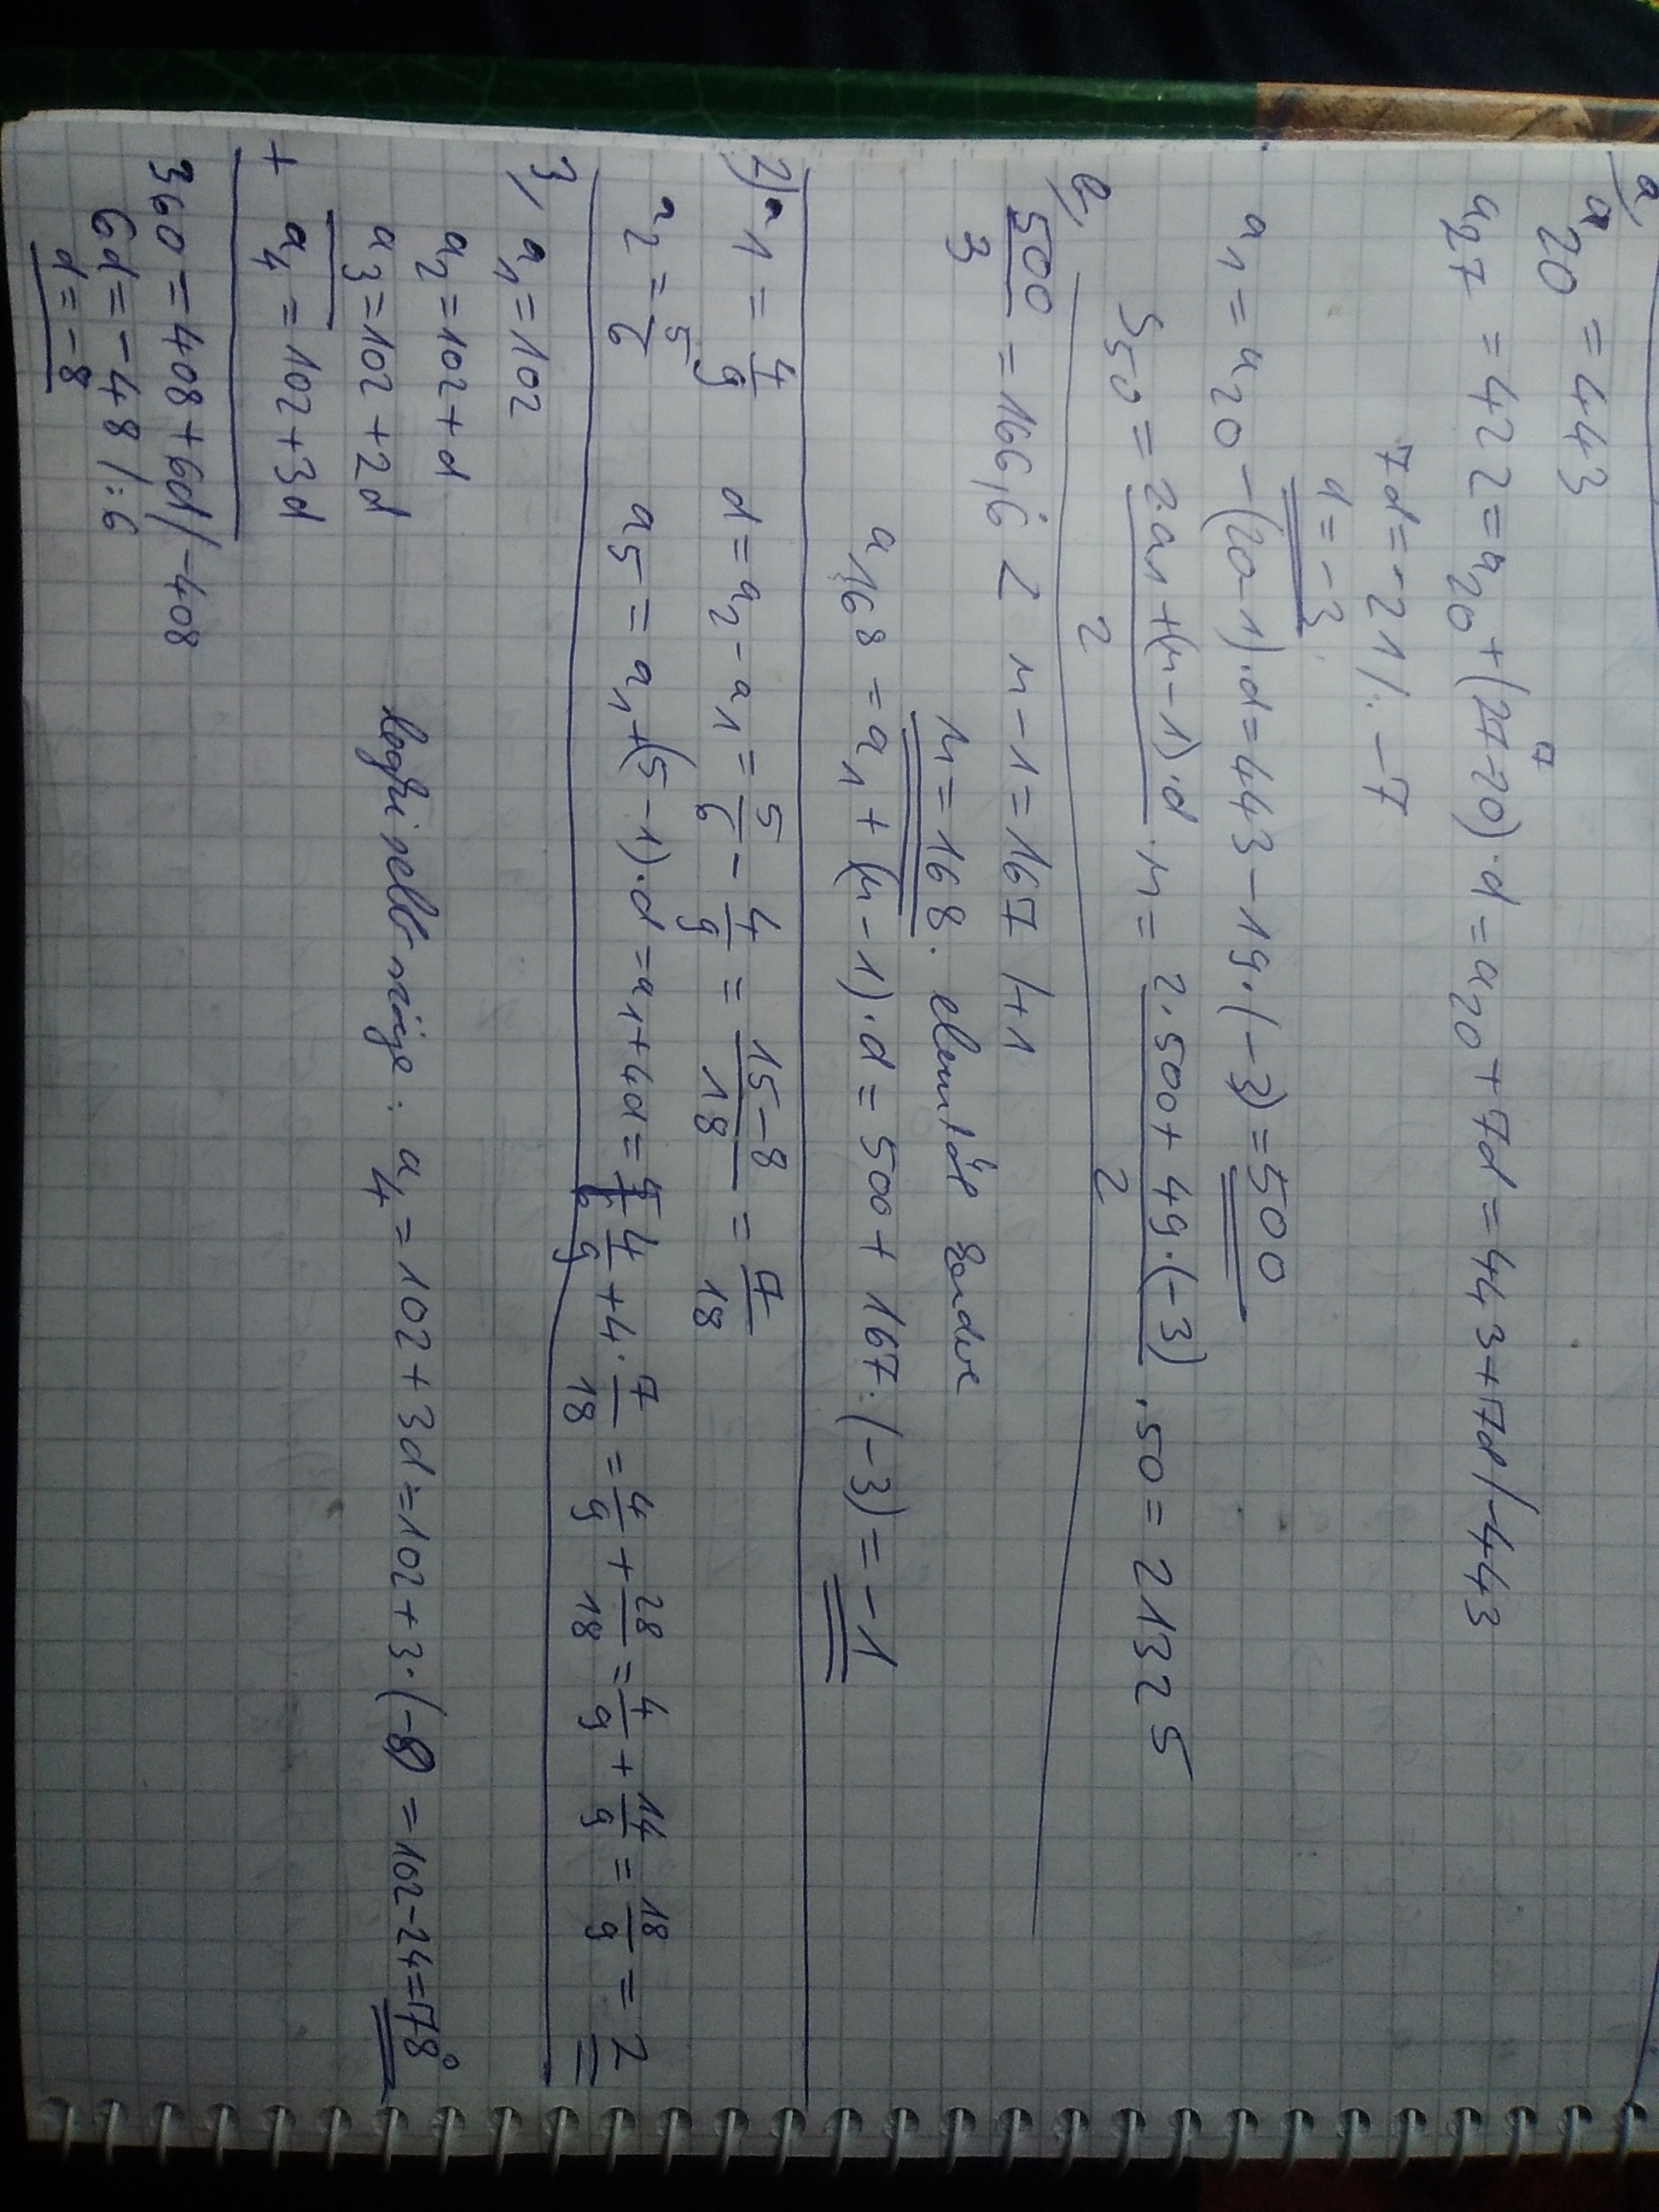 a,
a20 = 443
a27 = 422 = a20 + (27-20)·d = a20 + 7d = 443 + 7d /-443
7d = -21 /: -7
d = -3
a1 = a20 - (20-1)·d = 443 - 19·(-3) = 500
S50 = (2·a1 + (n-1)·d)/2 · n = (2·500 + 49·(-3))/2 · 50 = 21325
500/3 = 166,6̇ < n-1 = 167 /+1
n = 168. elemtől kezdve
a168 = a1 + (n-1)·d = 500 + 167·(-3) = -1
2) a1 = 4/9 d = a2 - a1 = 5/6 - 4/9 = (15-8)/18 = 7/18
a2 = 5/6 a5 = a1 + (5-1)·d = a1 + 4d = 4/9 + 4·7/18 = 4/9 + 28/18 = 4/9 + 14/9 = 18/9 = 2
3, a1 = 102
a2 = 102 + d
a3 = 102 + 2d
+ a4 = 102 + 3d
360 = 408 + 6d /-408
6d = -48 /:6
d = -8
a4 = 102 + 3d = 102 + 3·(-8) = 102 - 24 = 78°